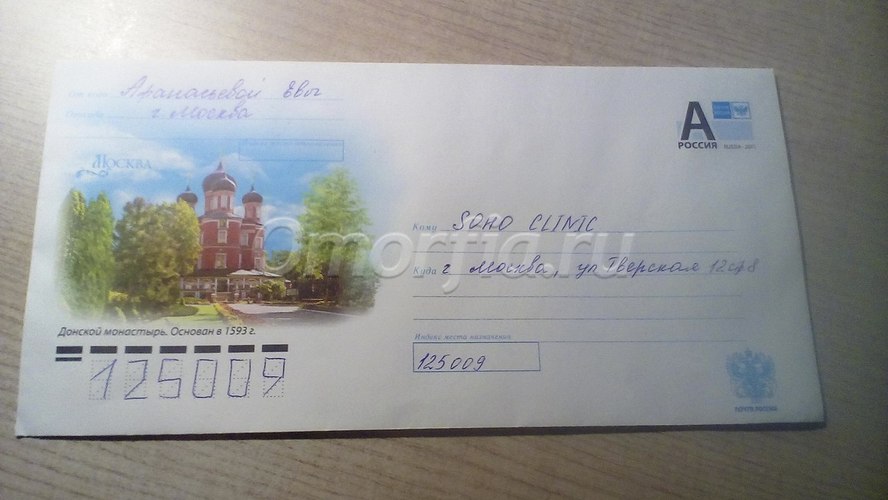 От кого Афанасьевой Евы
Откуда г. Москва
Москва
А
РОССИЯ
RUSSIA · 2011
Omorfia.ru
Кому SOHO CLINIC
Куда г. Москва, ул Тверская 12стр8
Донской монастырь. Основан в 1593 г.
Индекс места назначения
125009
125009
ПОЧТА РОССИИ